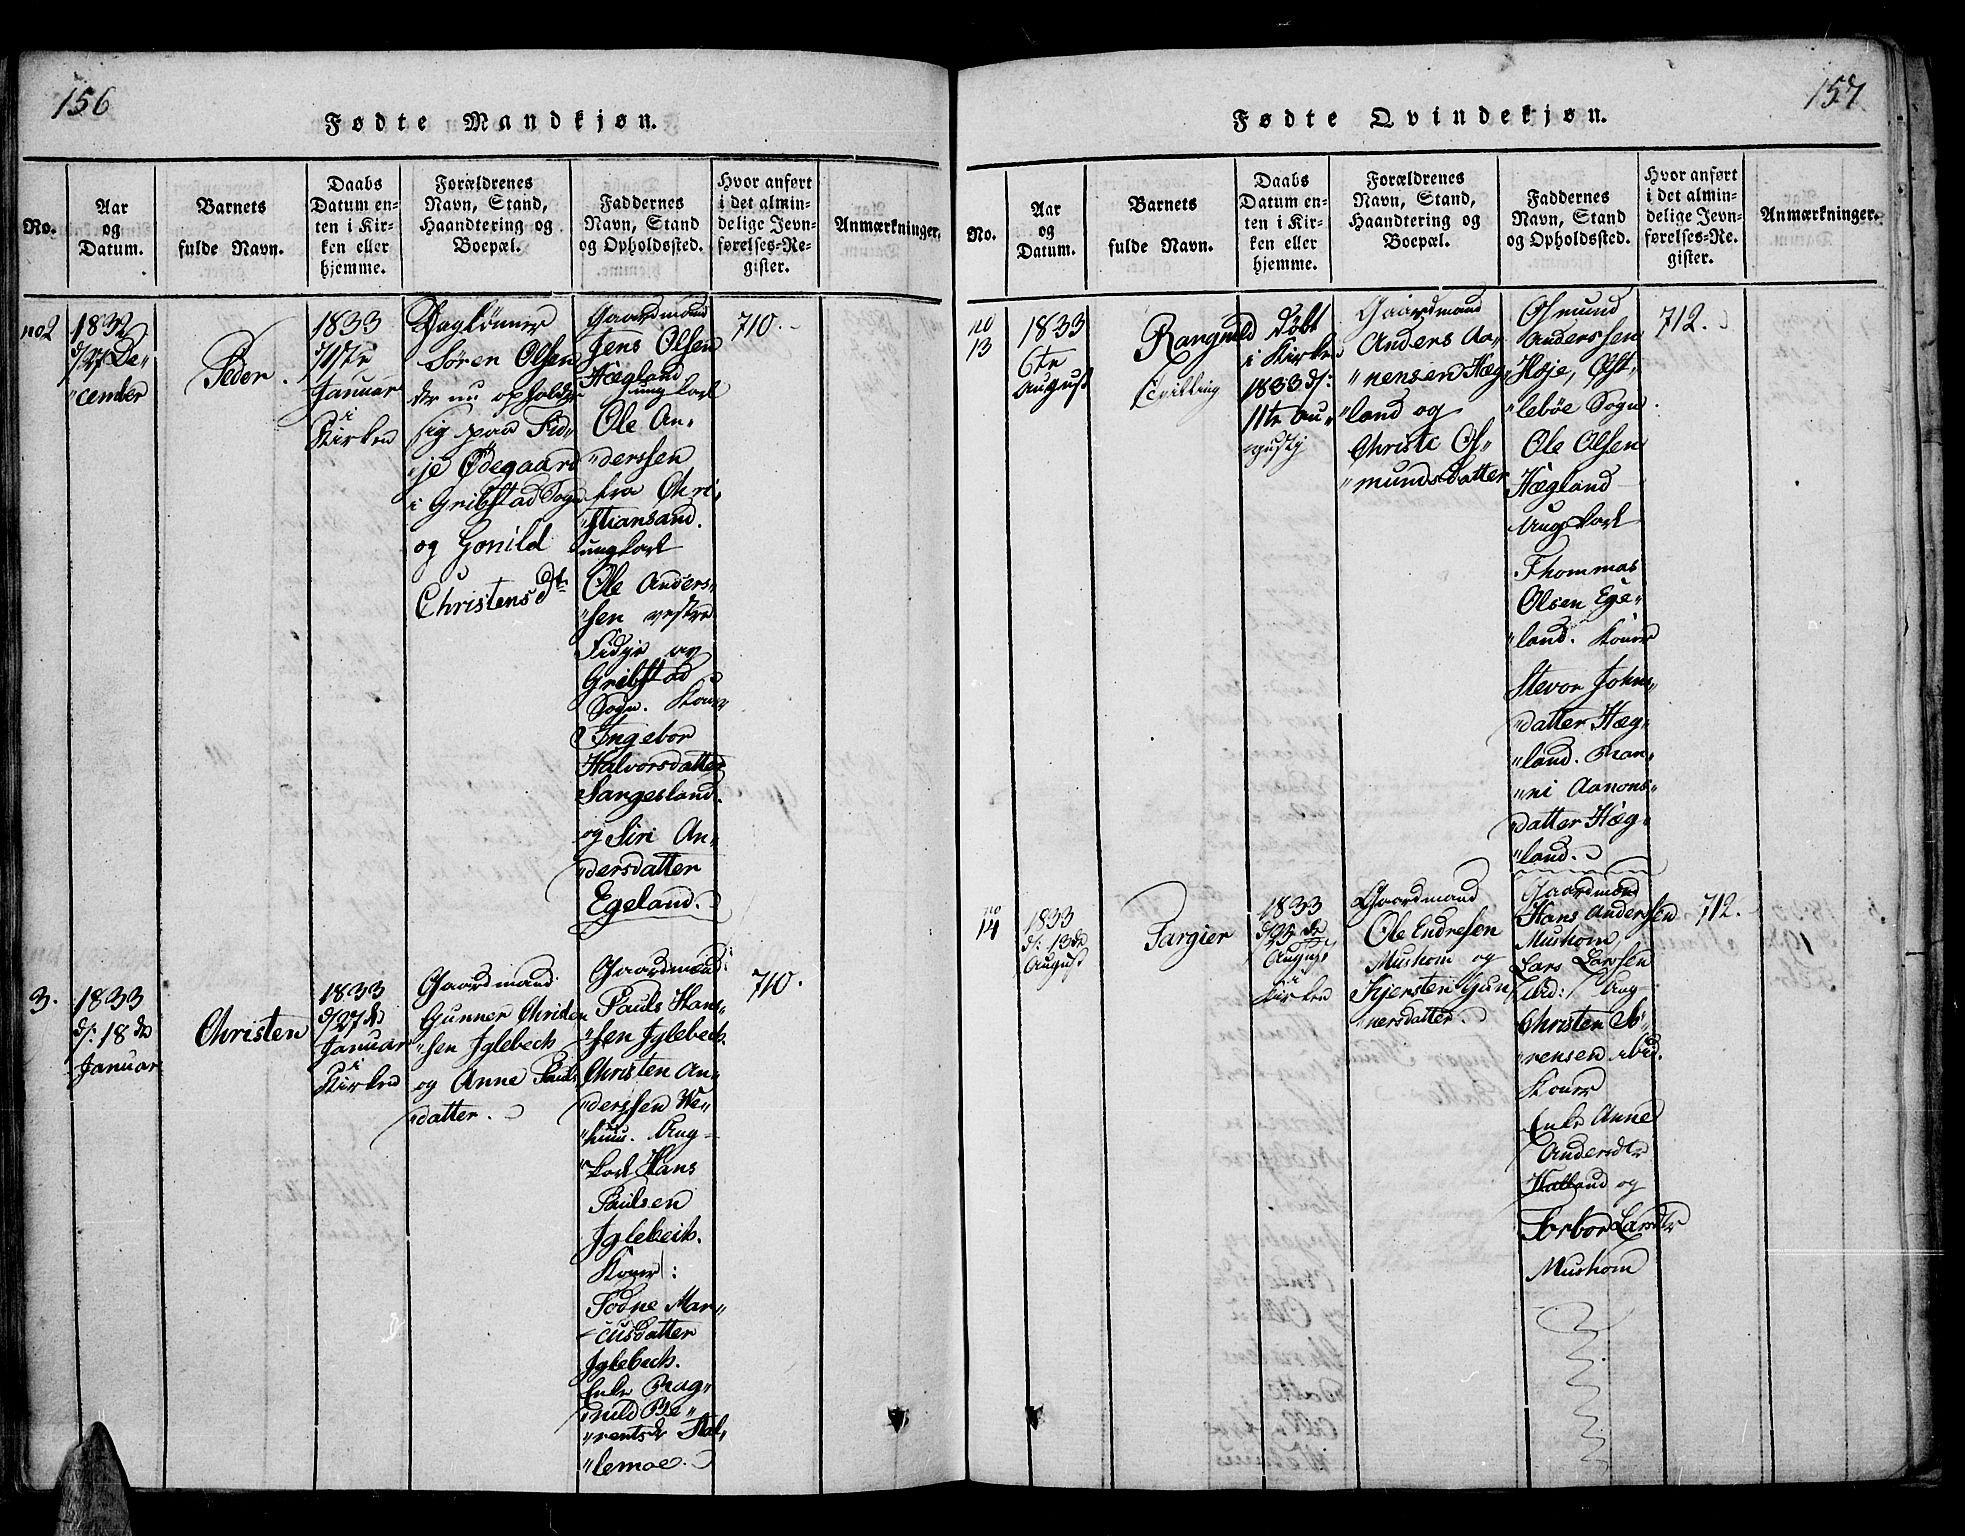 156
Fødte Mandkjøn.
No.
Aar
og
Datum.
Barnets
fulde Navn.
Daabs
Datum en-
ten i Kir-
ken eller
hjemme.
Forældrenes
Navn, Stand,
Haandtering og
Boepæl.
Faddernes
Navn, Stand
og Opholdssted.
Hvor anført
i det almin-
delige Jevn-
førelses-Re-
gister.
Anmærkninger.
no 2
1832
d/27 De-
"cember
Peder.
1833
Januar
i
Kirken
Daglønner
Søren Olsen
der nu opholder
sig paa Fid-
"je Ødegaard
i Gribstad Sogn
og Gonild
Christensdtr
Gaardmand
Jens Olsen
Hægland
ungkarl
Ole An-
"derssen
fra Chri-
"stiansand.
ungkarl
Ole Anders-
"sen vestre
Fidje av
Gribstad
Sogn. Koner
Ingebor
Halvorsdatter
Sangesland.
og Siri An-
"dersdatter
Egeland.
710.
3.
1833
d: 18de
Januar
Christen
1833
d/27de
Januar
i
Kirken
Gaardmand
Gunner Christen
"sen Iglebech
og Anne Pauls
"datter.
Gaardmænd:
Pauls Hans-
"sen Iglebech.
Christen An-
"derssen We-
Ung-
"karl Hans
Paulsen
Iglebech.
Koner:
Todne Mar-
-cusdatter
Iglebech.
Enke Rag-
"nild Be-
"rentsdr Stal-
"lemoe.
710.
157
Fødte Qvindekjøn.
No.
Aar
og
Datum.
Barnets
fulde Navn.
Daabs
Datum en-
ten i Kir-
ken eller
hjemme.
Forældrenes
Navn, Stand,
Haandtering og
Boepæl.
Faddernes
Navn, Stand
og Opholdssted.
Hvor anført
i det almin-
delige Jevn-
førelses-Re-
gister.
Anmærkninger.
no
13
1833
6te
August
Rangnild
Tvilling
Døbt
i Kirken
1833 d:
11te Au-
"gustj
Gaardmand
Anders Aa-
"nensen Hæg-
"land og
Christi Os-
"mundsdatter
Osmund
Anderssen
Hoje, Øst-
"lebøe Sogn.
Ole Olsen
Hægland
Ungkarl
Thommas
Olsen Ege-
"land. Koner
Stevor Johns-
"datter Hæg-
"land. Ran-
"ni Aanons-
"datter Hæg-
"land.
712.
no
14
1833
d: 13de
August
Targier
1833
d/25de
August
i
Kirken
Gaardmand
Ole Endresen
Mushom og
Kjersten Gun
"nersdatter.
Gaardmænd
Hans Andersen
Mushom,
Lars Larssen
ibid: Ung
Christen Sø-
"rensen ibid.
Koner
Enke Anne
Andersdtr
Hatland og
Torbor Larsdtr
Mushom
712.